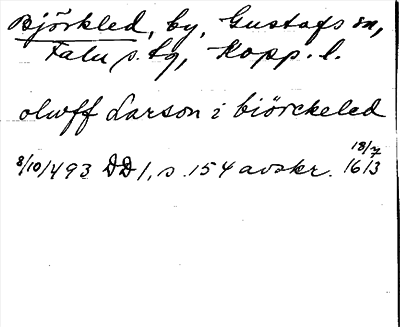 Björkled, by, Gustafs sn,
Falu s. tg, Kopp. l.
olwff Larson i biörckeled
8/10/493 DD1, s. 154 avskr. 18/7 1613